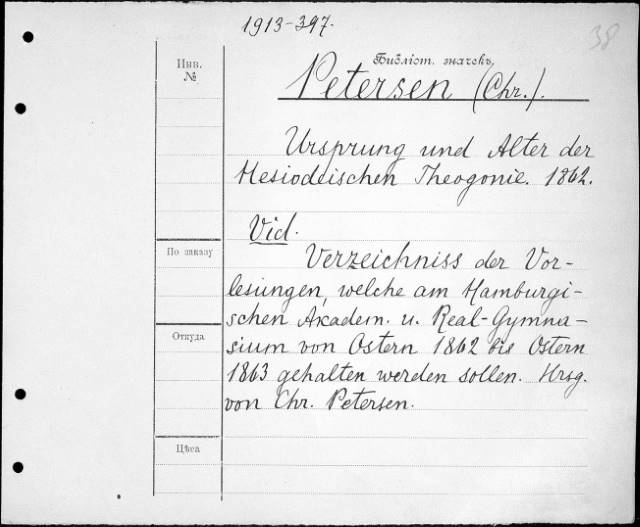 1913-397.
38
Инв.
№
Библіот. значекъ
Petersen (Chr.).
Ursprung und Alter der
Hesiodeischen Theogonie. 1862.
Vid.
По заказу
Verzeichniss der Vor-
lesungen, welche am Hamburgi-
schen Akadem. u. Real-Gymna-
Откуда
sium von Ostern 1862 bis Ostern
1863 gehalten werden sollen. Hrsg.
von Chr. Petersen.
Цѣна